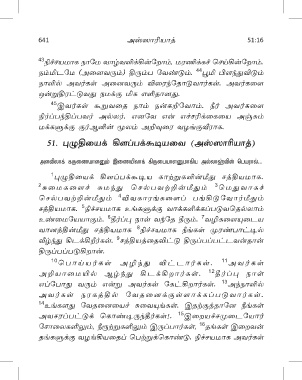 641 அஸ்ஸாரியாத் 51:16
43நிச்சயமாக நாமே வாழ்வளிக்கின்றோம், மரணிக்கச் செய்கின்றோம்.
நம்மிடமே (அனைவரும்) திரும்ப வேண்டும். 44பூமி பிளந்துவிடும்
நாளில் அவர்கள் அனைவரும் விரைந்தோடுவார்கள். அவர்களை
ஒன்றுதிரட்டுவது நமக்கு மிக எளிதானது.
45இவர்கள் கூறுவதை நாம் நன்கறிவோம். நீர் அவர்களை
நிர்ப்பந்திப்பவர் அல்லர். எனவே என் எச்சரிக்கையை அஞ்சும்
மக்களுக்கு குர்ஆனின் மூலம் அறிவுரை வழங்குவீராக.
51. புழுதியைக் கிளப்பக்கூடியவை (அஸ்ஸாரியாத்)
அளவிலாக் கருணையாளனும் இணையிலாக் கிருபையாளனுமாகிய அல்லாஹ்வின் பெயரால்...
1புழுதியைக் கிளப்பக்கூடிய காற்றுகளின்மீது சத்தியமாக.
2சுமைகளைச் சுமந்து செல்பவற்றின்மீதும் 3மெதுவாகச்
செல்பவற்றின்மீதும் 4விவகாரங்களைப் பங்கிடுவோர்மீதும்
சத்தியமாக. 5நிச்சயமாக உங்களுக்கு வாக்களிக்கப்படுவதெல்லாம்
உண்மையேயாகும். 6தீர்ப்பு நாள் வந்தே தீரும். 7வழிகளையுடைய
வானத்தின்மீது சத்தியமாக 8நிச்சயமாக நீங்கள் முரண்பாட்டில்
வீழ்ந்து கிடக்கிறீர்கள். 9சத்தியத்தைவிட்டு திருப்பப்பட்டவன்தான்
திருப்பப்படுகிறான்.
10பொய்யர்கள் அழிந்து விட்டார்கள். 11அவர்கள்
அறியாமையில் ஆழ்ந்து கிடக்கிறார்கள். 12தீர்ப்பு நாள்
எப்போது வரும் என்று அவர்கள் கேட்கிறார்கள். 13அந்நாளில்
அவர்கள் நரகத்தில் வேதனைக்குள்ளாக்கப்படுவார்கள்.
14உங்களது வேதனையைச் சுவையுங்கள். இதற்குத்தானே நீங்கள்
அவசரப்பட்டுக் கொண்டிருந்தீர்கள்!. 15இறையச்சமுடையோர்
சோலைகளிலும், நீரூற்றுகளிலும் இருப்பார்கள். 16தங்கள் இறைவன்
தங்களுக்கு வழங்கியதைப் பெற்றுக்கொண்டு. நிச்சயமாக அவர்கள்